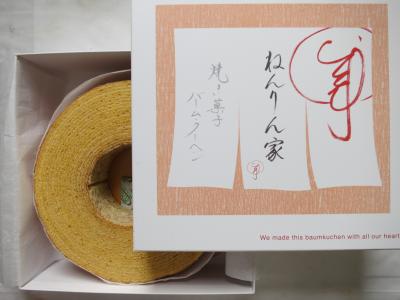 ねんりん家
焼き菓子
バームクーヘン
We made this baumkuchen with all our heart